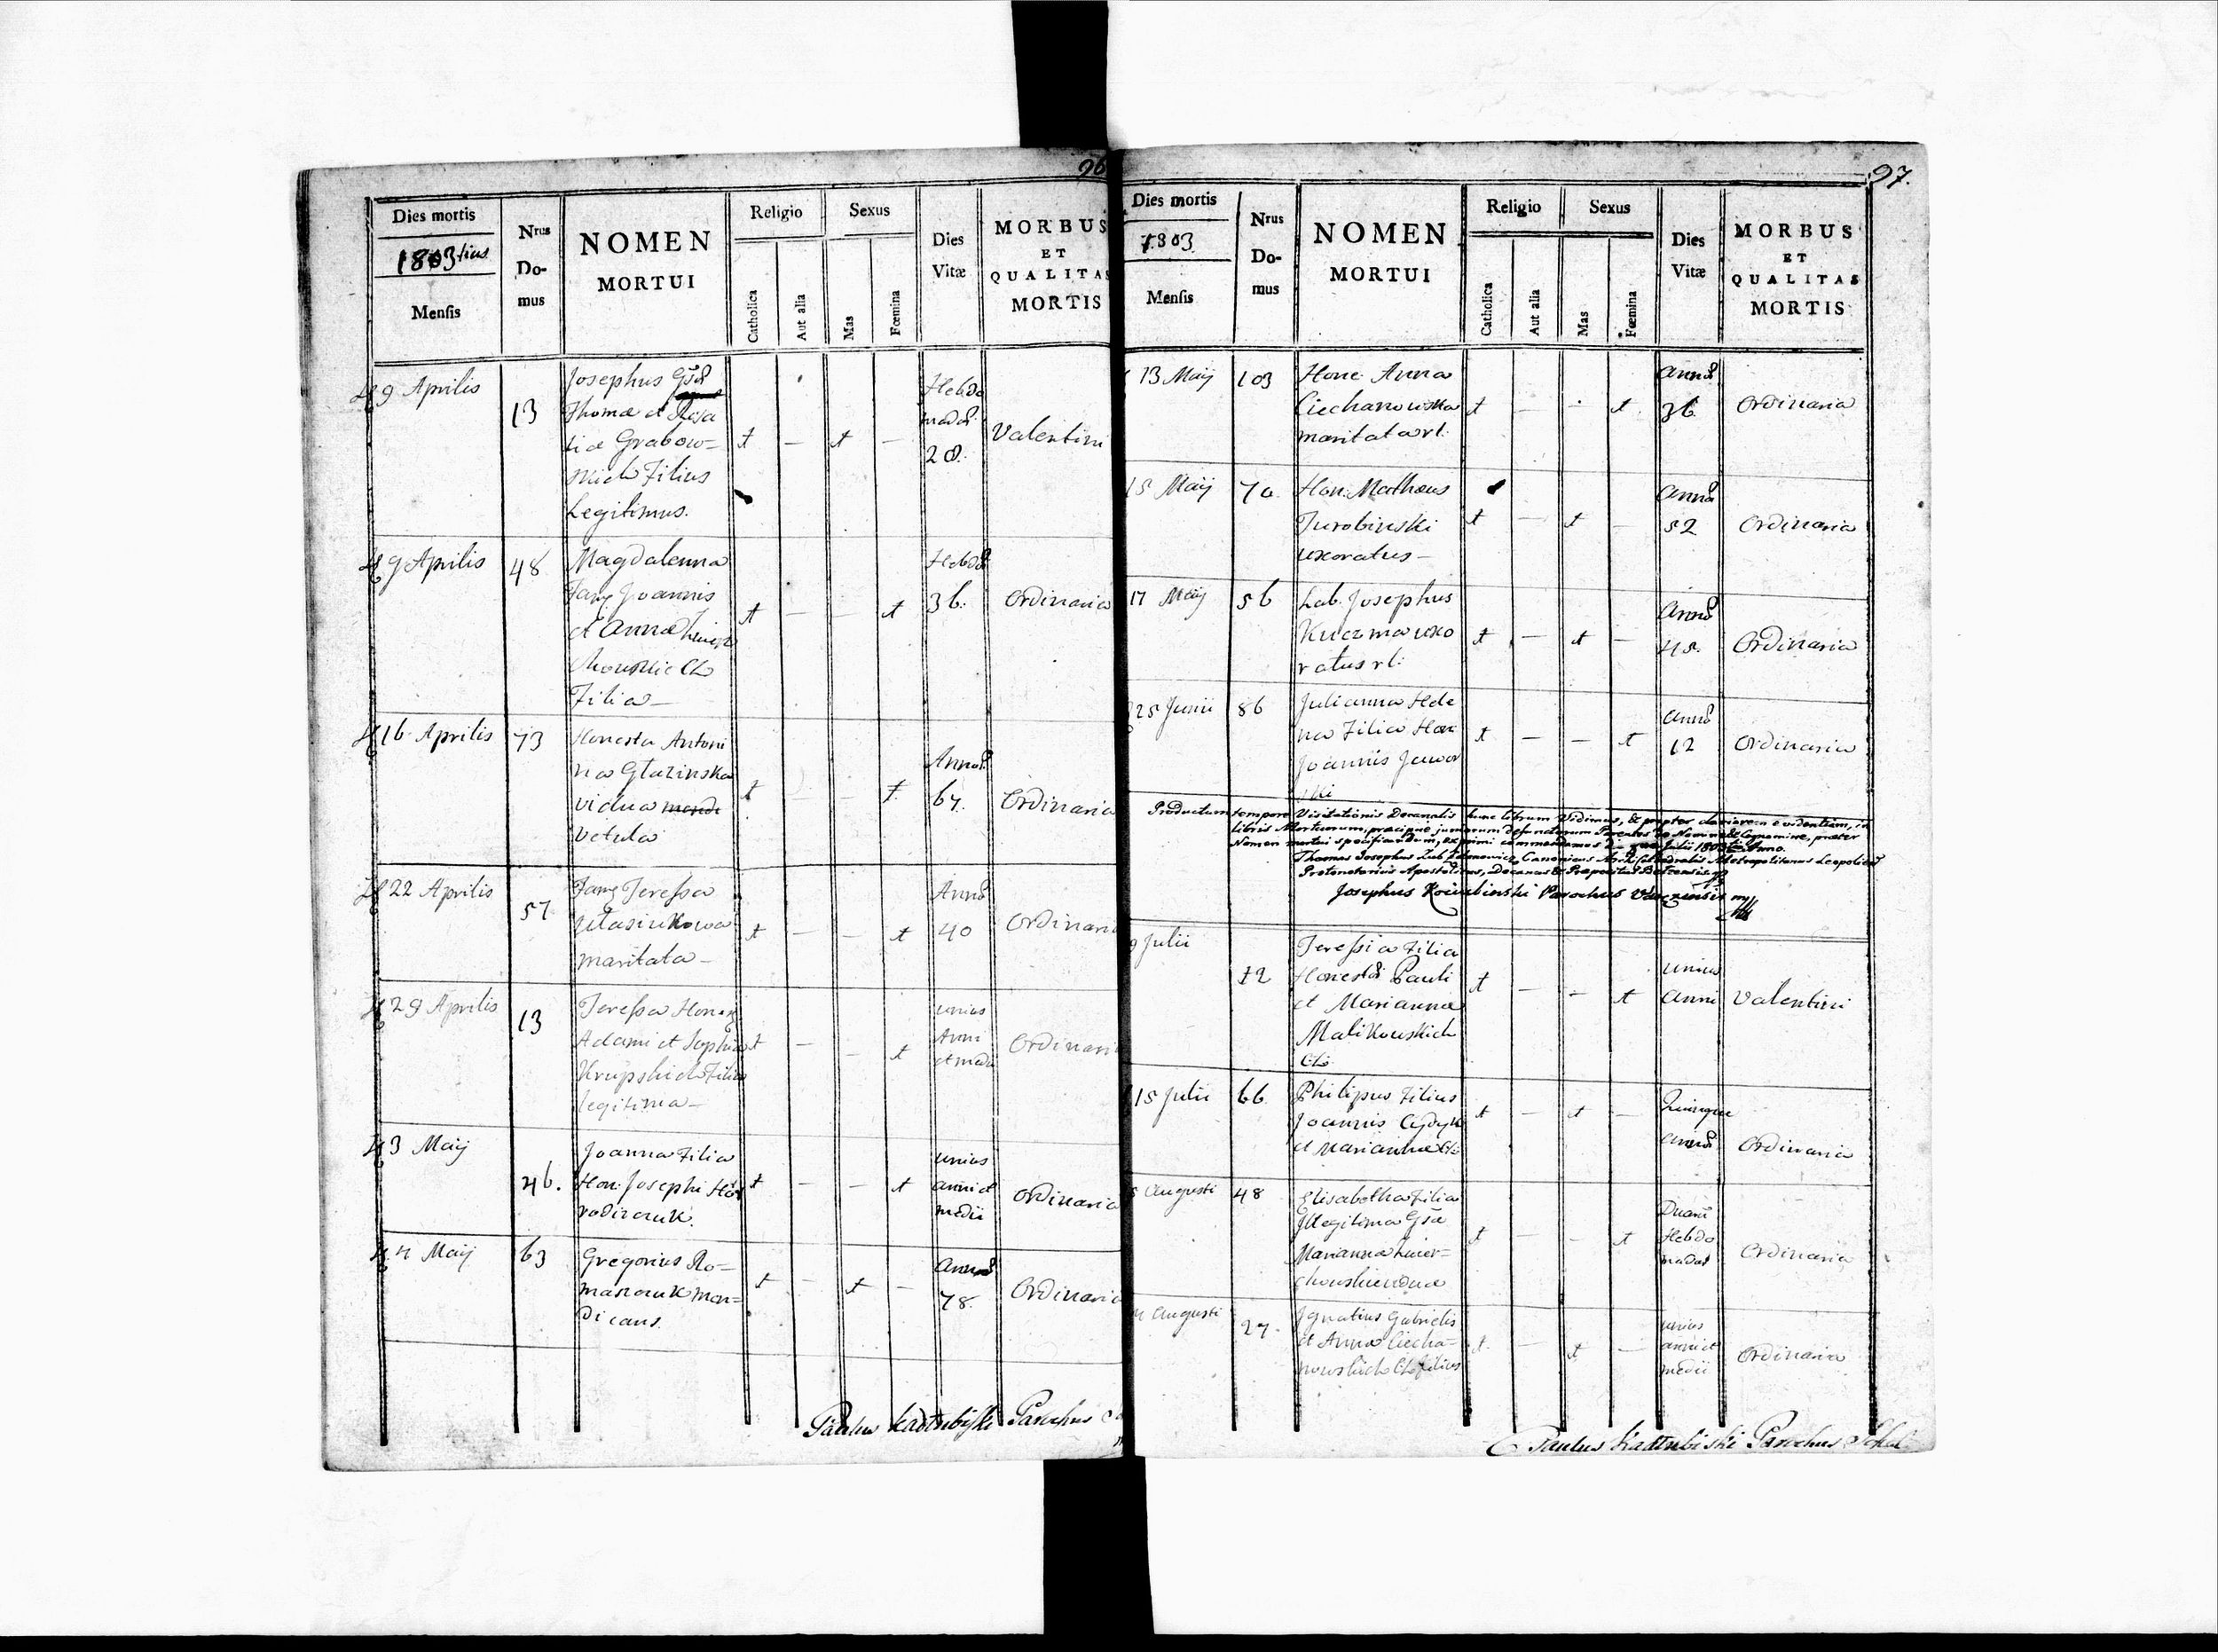 96
Dies mortis
1803tius
Mensis
Nrus
Do-
mus
NOMEN
MORTUI
Religio
Catholica
Aut alia
Sexus
Mas
Fœmina
Dies
Vitæ
MORBUS
ET
QUALITAS
MORTIS
9 Aprilis
13
Josephus
Thomæ et Rosa
liæ Grabow=
skich Filius
Legitimus.
t — t —
Hebdo
mad
28.
Valentini
9 Aprilis
48
Magdalenna
Joannis
et Annæ
Filia—
t — — t
Hebd
36.
Ordinaria
16 Aprilis
73
Honesta Antoni
na Głazinska
vidua
Vetula
t — — t
67.
Ordinaria
22 Aprilis
57
Teressa
maritata—
t — — t
40
Ordinaria
29 Aprilis
13
Teressa
Adami et Sophiæ
Krupskich Filia
legitima—
t — — t
unius
Anni
et medii
Ordinaria
3 Maij
46.
Joanna Filia
Hon: Josephi
t — — t
unius
anni et
medii
Ordinaria
4 Maij
63
Gregorius Ro=
manczuk Men=
dicans.
t — t —
78.
Ordinaria
Paulus Kadłubiski Parochus
97.
Dies mortis
1803
Mensis
Nrus
Do-
mus
NOMEN
MORTUI
Religio
Catholica
Aut alia
Sexus
Mas
Fœmina
Dies
Vitæ
MORBUS
ET
QUALITAS
MORTIS
13 Maij
103
Hone: Anna
Ciechanowska
maritata
t — — t
36
Ordinaria
15 Maij
70.
Hon: Matheus
Turobinski
uxoratus—
t — t —
52
Ordinaria
17 Maij
56
Lab. Josephus
Kuczma uxo
ratus
t — t —
45.
Ordinaria
25 Junii
86
Julianna Hele
na Filia Hon:
Joannis Jawor
ski
t — — t
12
Ordinaria
Productum tempore Visitationis Decanalis hunc librum Vidimus, & propter clariorem evidentiam, in
libris Mortuorum, præcipue juniorum defunctorum Parentes de Nomine & Cognomine, præter
Nomen mortui specificandum, exprimi commendamus Julii 1803 Anno.
Thomas Josephus Canonicus Metropolitanus
Protonotarius Apostolicus, Decanus & Præpositus
Josephus Parochus
9 Julii
72
Teressia Filia
Pauli
et Mariannæ
Malikowskich
t — — t
unius
Anni
Valentini
15 Julii
66
Philipus Filius
Joannis
et Mariannæ
t — t —
Quinque
Ordinaria
Augusti
48
Elisabetha Filia
Illegitima
Marianna
t — — t
Hebdo
Ordinaria
Augusti
27.
Ignatius Gabrielis
et Annæ Ciecha=
nowskich filius
t — t —
unius
anni et
medii
Ordinaria
Paulus Kadłubiski Parochus